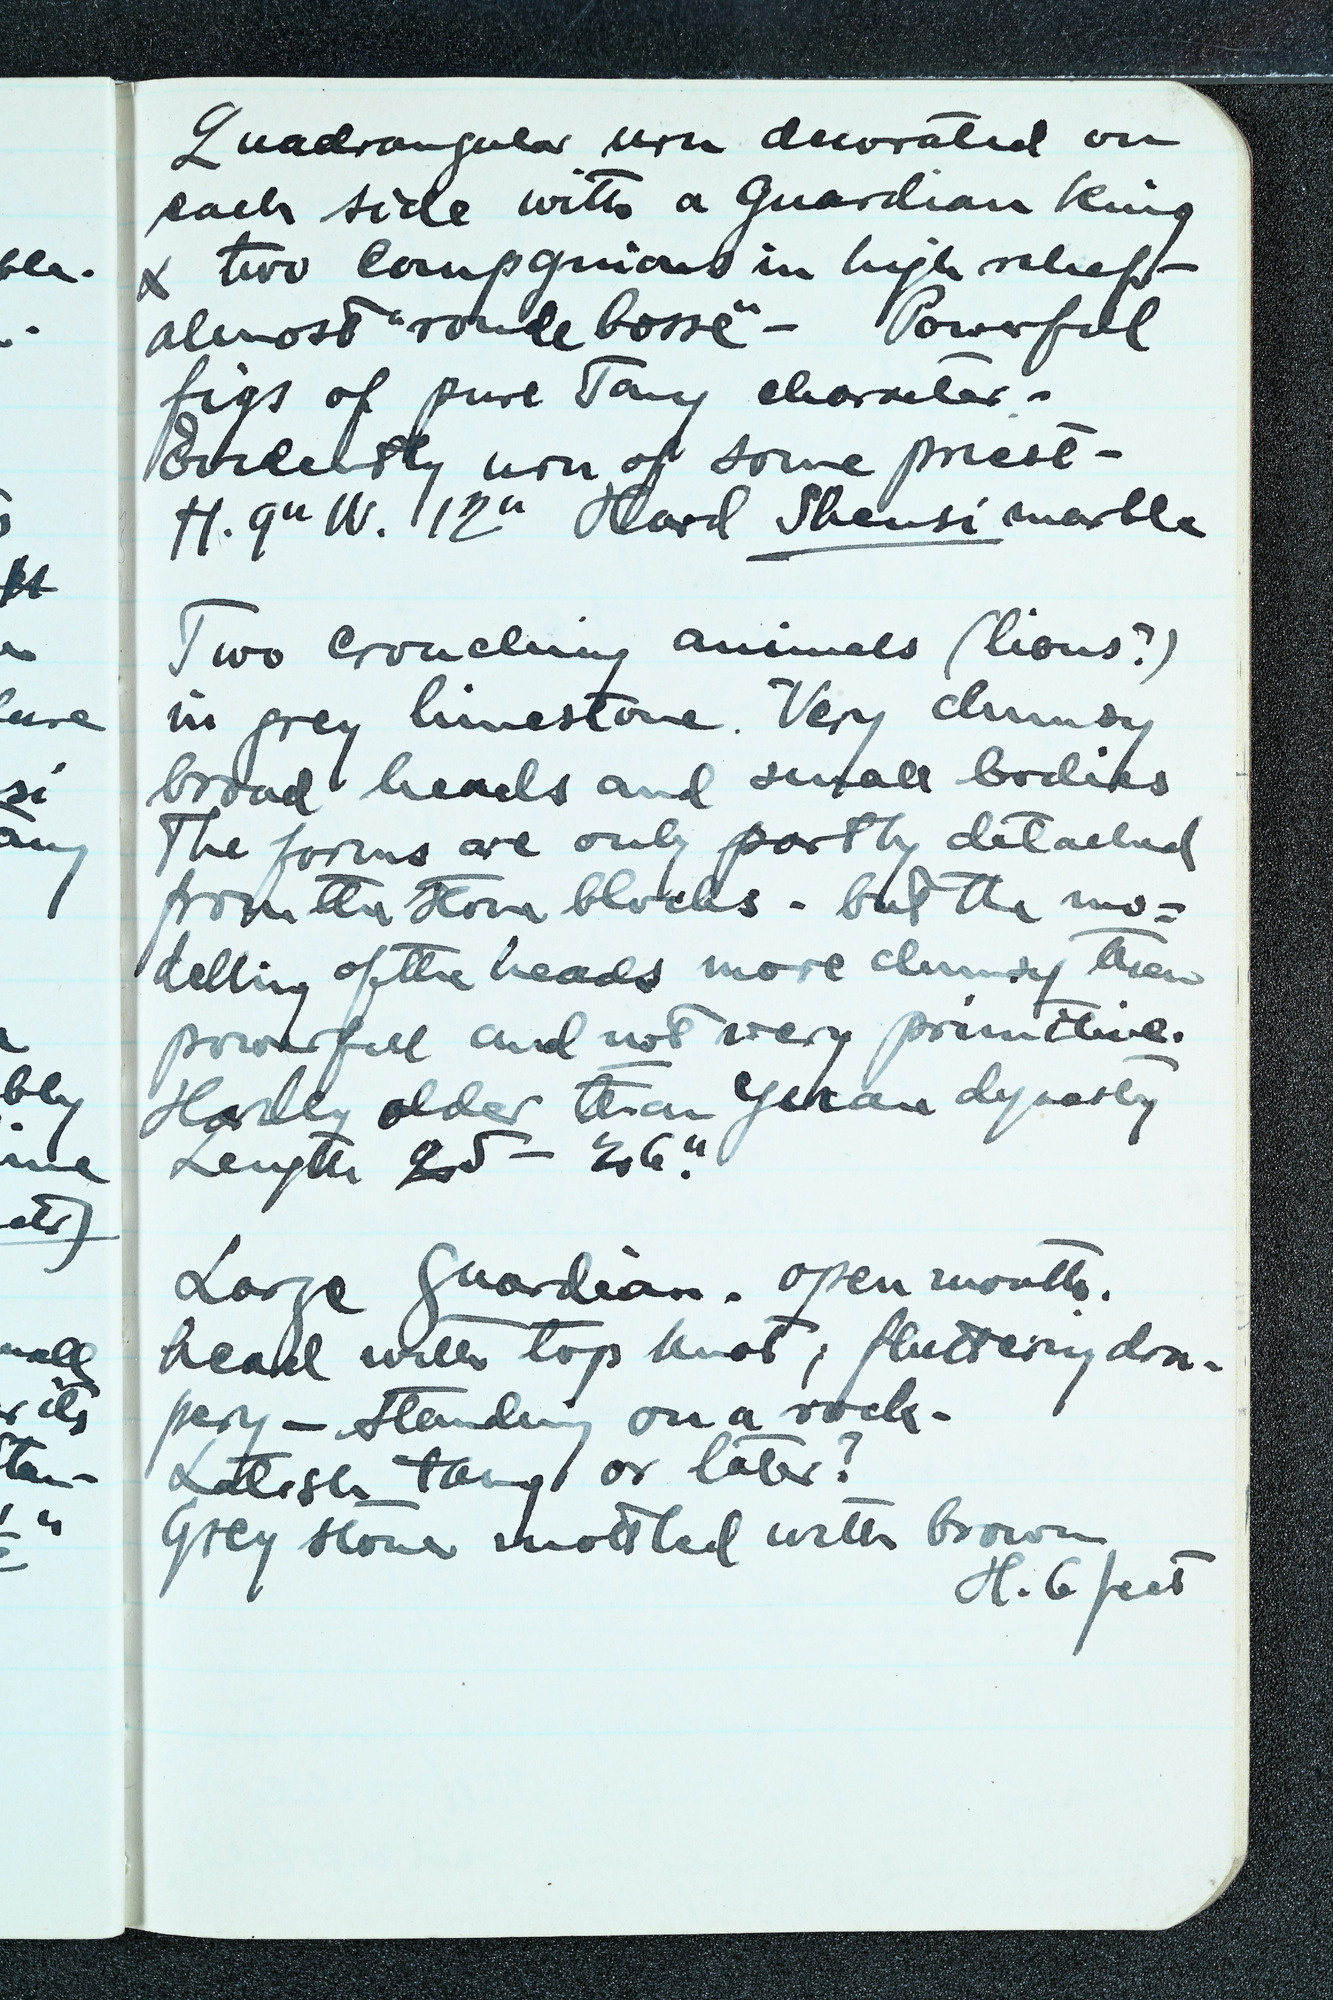 Quadrangular urn decorated on
each side with a Guardian King
& two compgnions in high relief -
almost "ronde bosse" - Powerful
figs of pure Tang character -
Evidently urn of some priest -
H. 9" W. 12" Hard Shensi marble
Two crouching animals (lions?)
in grey limestone. Very clumsy
broad heads and small bodies
The forms are only partly detached
from the stone blocks - but the mo=
delling of the heads more clumsy than
powerful and not very primitive.
Hardly older than Yuan dynasty
Length 25 - 26"
Large Guardian - open mouth.
head with top knot; fluttering dra-
pery - standing on a rock -
Latish Tang or later?
Grey stone mottled with brown
H. 6 feet